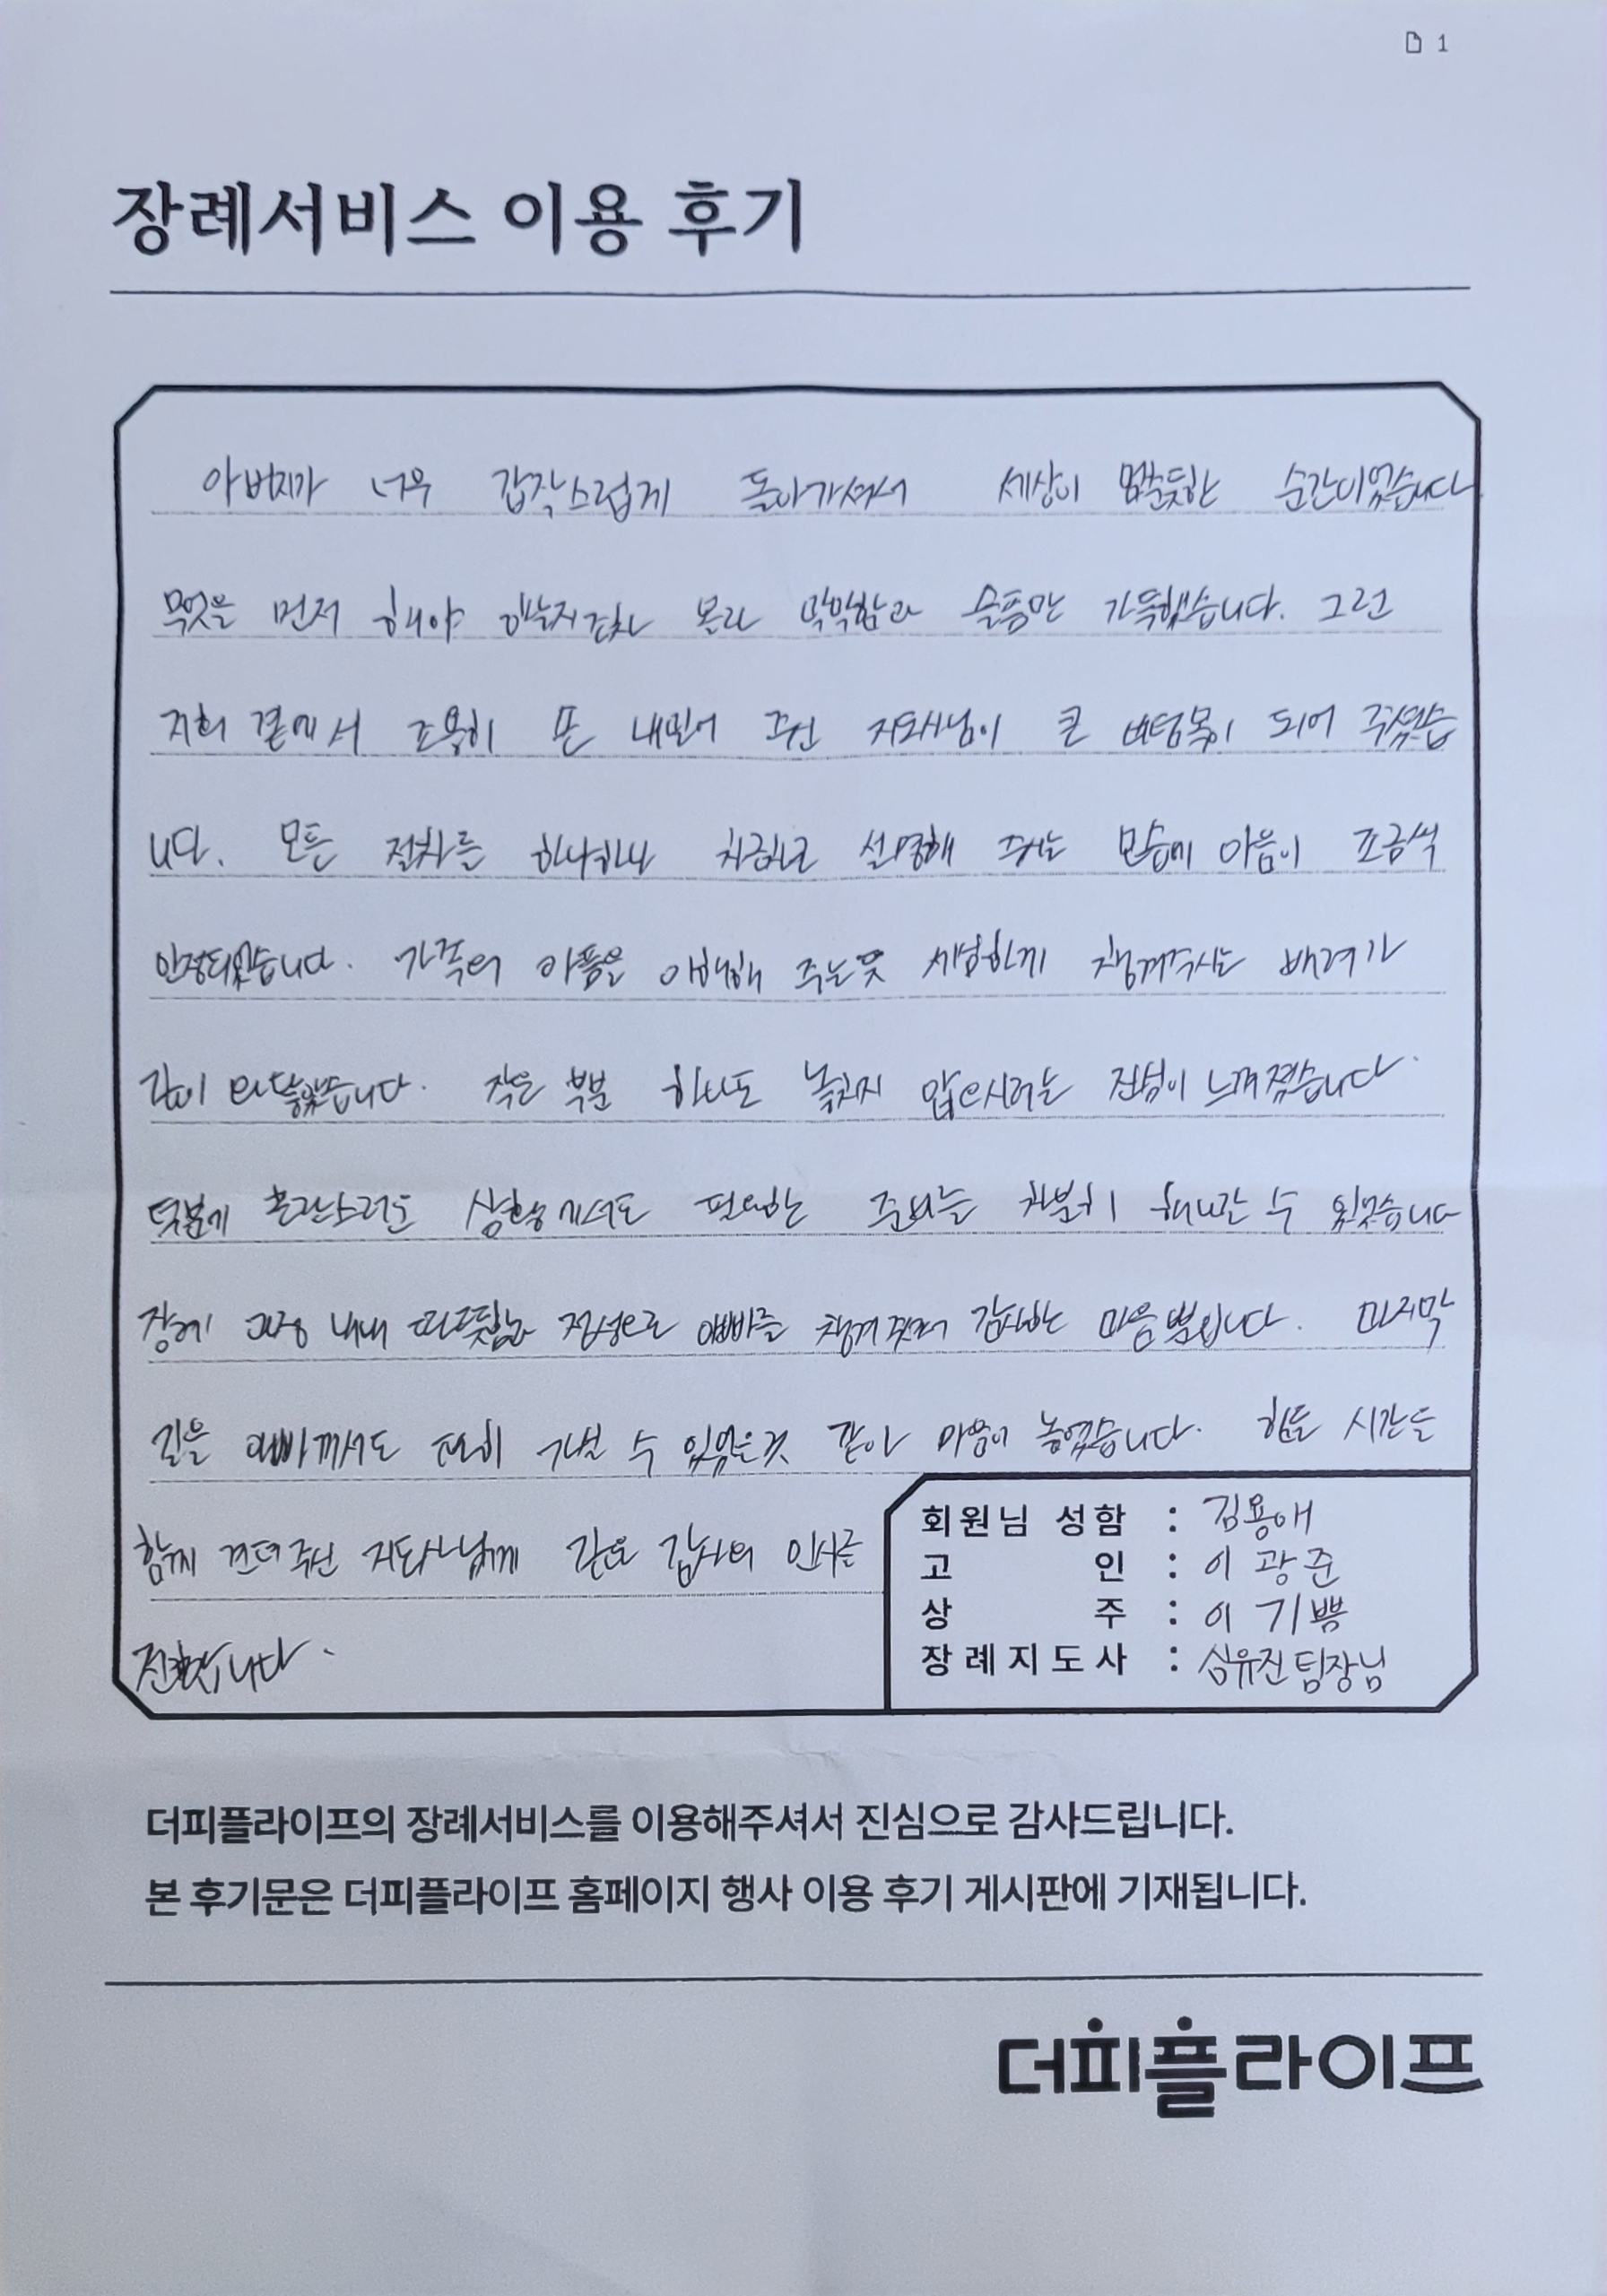 1
장례서비스 이용 후기
아버지가 너무 갑작스럽게 돌아가셔서 세상이 멈춘듯한 순간이었습니다
무엇을 먼저 해야 할지조차 몰라 막막함과 슬픔만 가득했습니다. 그런
저희 곁에서 조용히 손 내밀어 주신 지도사님이 큰 버팀목이 되어 주셨습
니다. 모든 절차를 하나하나 차근차근 설명해 주시는 모습에 마음이 조금씩
안정되었습니다. 가족의 아픔을 이해해 주는듯 세심하게 챙겨주시는 배려가
깊이 와닿았습니다. 작은 부분 하나도 놓치지 않으시려는 진심이 느껴졌습니다.
덕분에 혼란스러운 상황에서도 필요한 준비를 차분히 해나갈 수 있었습니다
장례 과정 내내 따뜻한 정성으로 아빠를 챙겨주셔서 감사한 마음뿐입니다. 마지막
길을 아빠께서도 편히 가실 수 있었을것 같아 마음이 놓였습니다. 힘든 시간을
함께 견뎌주신 지도사님께 깊은 감사의 인사를
전합니다.
회원님 성함 : 김용애
고 인 : 이광준
상 주 : 이기쁨
장례지도사 : 심유진팀장님
더피플라이프의 장례서비스를 이용해주셔서 진심으로 감사드립니다.
본 후기문은 더피플라이프 홈페이지 행사 이용 후기 게시판에 기재됩니다.
더피플라이프